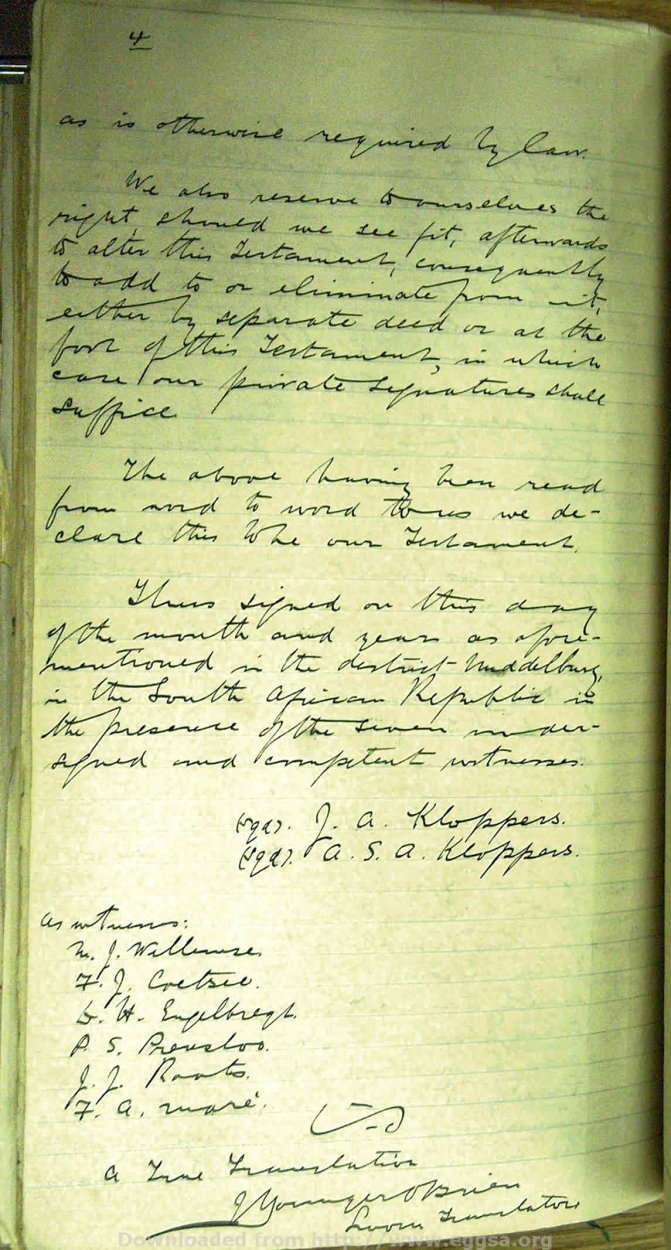 4
as is otherwise required by law.
We also reserve to ourselves the
right, should we see fit, afterwards
to alter this Testament, consequently
to add to or eliminate from it,
either by separate deed or at the
foot of this Testament, in which
case our private signatures shall
suffice
The above having been read
from word to word to us we de-
clare this to be our Testament.
Thus signed on this day
of the month and year as afore-
mentioned in the district Middelburg,
in the South African Republic in
the presence of the seven under-
signed and competent witnesses.
(sgd). J. A. Kloppers.
(sgd). A. S. A. Kloppers.
as witness:
J. Willemse.
F. J. Coetsee.
H. Engelbregt.
P. S. Prensloo.
J. J. Roots.
F. A. maré.
A True Translation
J Younger OBrien
Sworn Translator
Downloaded from http://www.eggsa.org